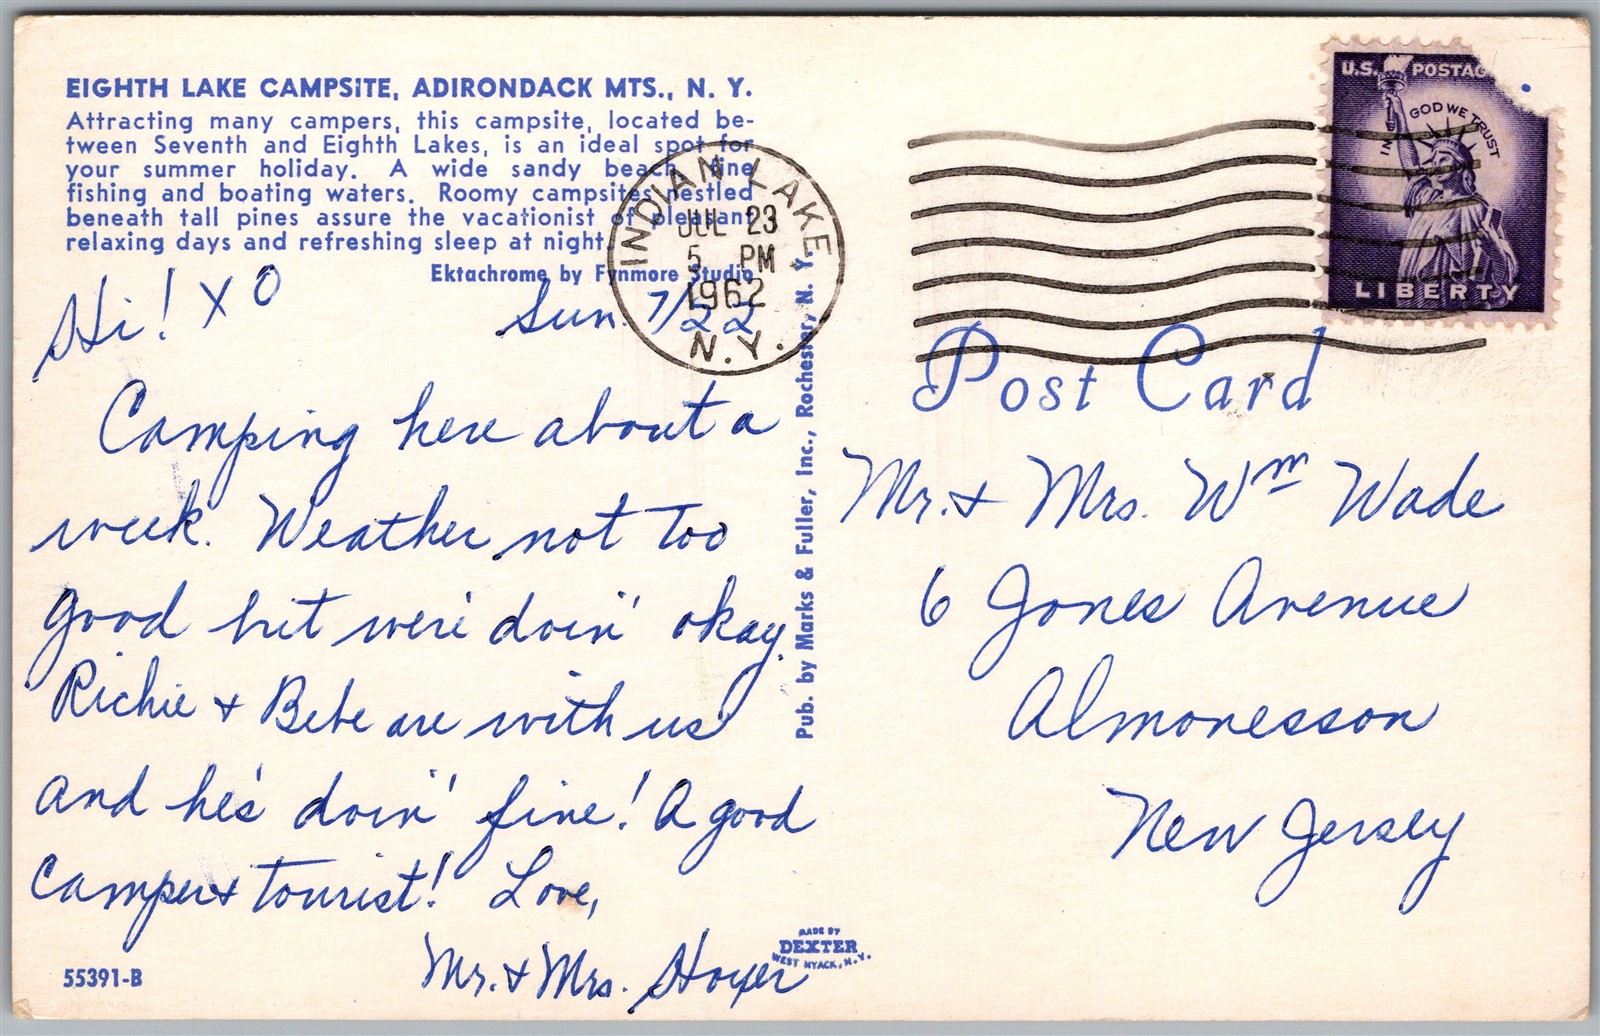 EIGHTH LAKE CAMPSITE, ADIRONDACK MTS., N. Y.
Attracting many campers, this campsite, located be-
tween Seventh and Eighth Lakes, is an ideal spot for
your summer holiday. A wide sandy beach, fine
fishing and boating waters. Roomy campsites nestled
beneath tall pines assure the vacationist of pleasant
relaxing days and refreshing sleep at night.
Ektachrome by Fynmore Studio
Hi! X O
Sun. 7/22
Camping here about a
week. Weather not too
good but we're doin' okay.
Richie + Bebe are with us
and he's doin' fine! A good
camper + tourist! Love,
Mr. + Mrs. Hoyer
55391-B
MADE BY
DEXTER
WEST NYACK, N.Y.
Pub. by Marks & Fuller, Inc., Rochester, N. Y.
INDIAN LAKE
JUL 23
5 PM
1962
N.Y.
U.S. POSTAG
IN GOD WE TRUST
LIBERTY
Post Card
Mr. + Mrs. Wm Wade
6 Jones Avenue
Almonesson
New Jersey